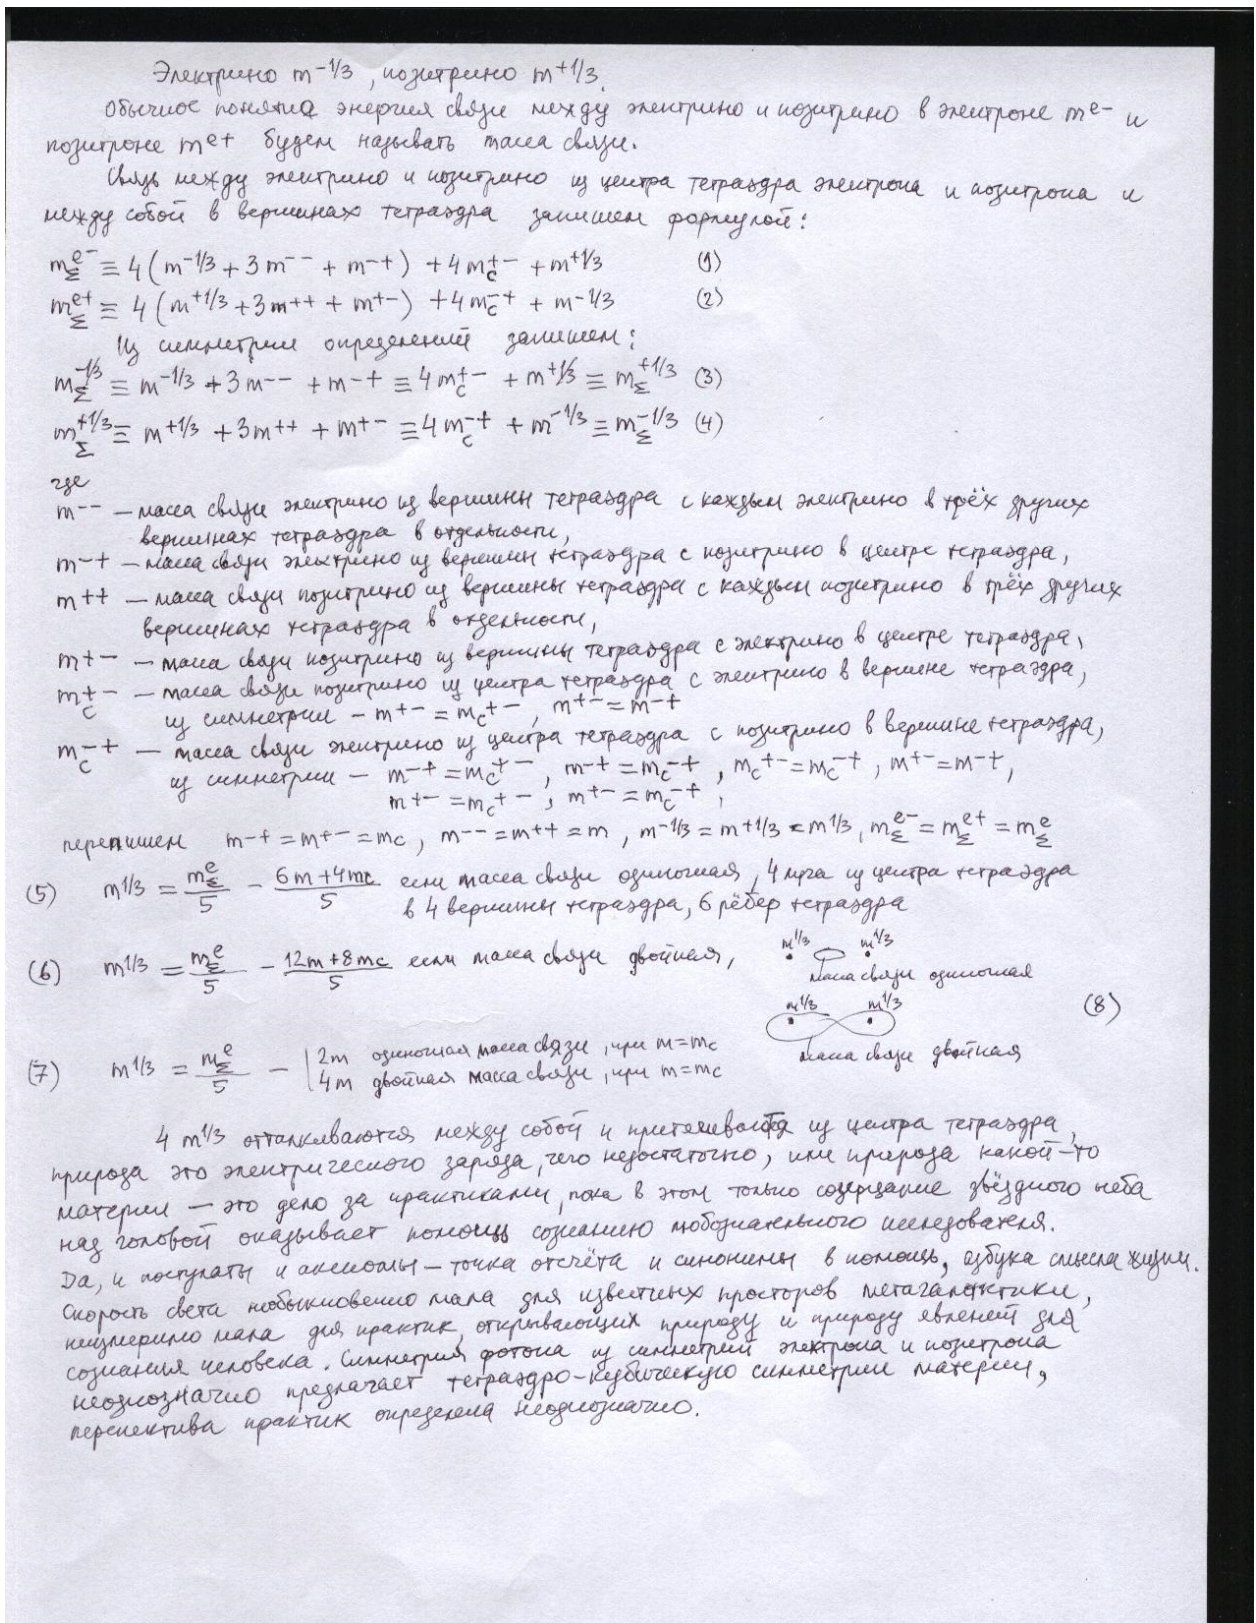 Электрино m-1/3, позитрино m+1/3.
Обычное понятие энергия связи между электрино и позитрино в электроне me- и
позитроне me+ будем называть масса связи.
Связь между электрино и позитрино из центра тетраэдра электрона и позитрона и
между собой в вершинах тетраэдра запишем формулой:
mΣe- ≡ 4(m-1/3 + 3m-- + m-+) + 4mc+- + m+1/3 (1)
mΣe+ ≡ 4(m+1/3 + 3m++ + m+-) + 4mc-+ + m-1/3 (2)
Из симметрии определений запишем:
mΣ-1/3 ≡ m-1/3 + 3m-- + m-+ ≡ 4mc+- + m+1/3 ≡ mΣ+1/3 (3)
mΣ+1/3 ≡ m+1/3 + 3m++ + m+- ≡ 4mc-+ + m-1/3 ≡ mΣ-1/3 (4)
где
m-- — масса связи электрино из вершины тетраэдра с каждым электрино в трёх других
вершинах тетраэдра в отдельности,
m-+ — масса связи электрино из вершины тетраэдра с позитрино в центре тетраэдра,
m++ — масса связи позитрино из вершины тетраэдра с каждым позитрино в трёх других
вершинах тетраэдра в отдельности,
m+- — масса связи позитрино из вершины тетраэдра с электрино в центре тетраэдра,
mc+- — масса связи позитрино из центра тетраэдра с электрино в вершине тетраэдра,
из симметрии — m+- = mc+-, m+- = m-+
mc-+ — масса связи электрино из центра тетраэдра с позитрино в вершине тетраэдра,
из симметрии — m-+ = mc+-, m-+ = mc-+, mc+- = mc-+, m+- = m-+,
m+- = mc+-, m+- = mc-+,
перепишем m-+ = m+- = mc, m-- = m++ = m, m-1/3 = m+1/3 = m1/3, mΣe- = mΣe+ = mΣe
(5) m1/3 = mΣe/5 - (6m+4mc)/5 если масса связи одиночная, 4 луча из центра тетраэдра
в 4 вершины тетраэдра, 6 рёбер тетраэдра
(6) m1/3 = mΣe/5 - (12m+8mc)/5 если масса связи двойная,
m1/3 m1/3
масса связи одиночная
m1/3 m1/3 (8)
масса связи двойная
(7) m1/3 = mΣe/5 - | 2m одиночная масса связи, при m=mc
4m двойная масса связи, при m=mc
4 m1/3 отталкиваются между собой и притягиваются из центра тетраэдра,
природа это электрического заряда, чего недостаточно, или природа какой-то
материи — это дело за практиками, пока в этом только созерцание звёздного неба
над головой оказывает помощь сознанию любознательного исследователя.
Да, и постулаты и аксиомы — точка отсчёта и синонимы в помощь, азбука смысла жизни.
Скорость света необыкновенно мала для известных просторов метагалактики,
неизмеримо мала для практик, открывающих природу и природу явлений для
сознания человека. Симметрия фотона из симметрий электрона и позитрона
неоднозначно предлачает тетраэдро-кубическую симметрию материи,
перспектива практик определена неоднозначно.